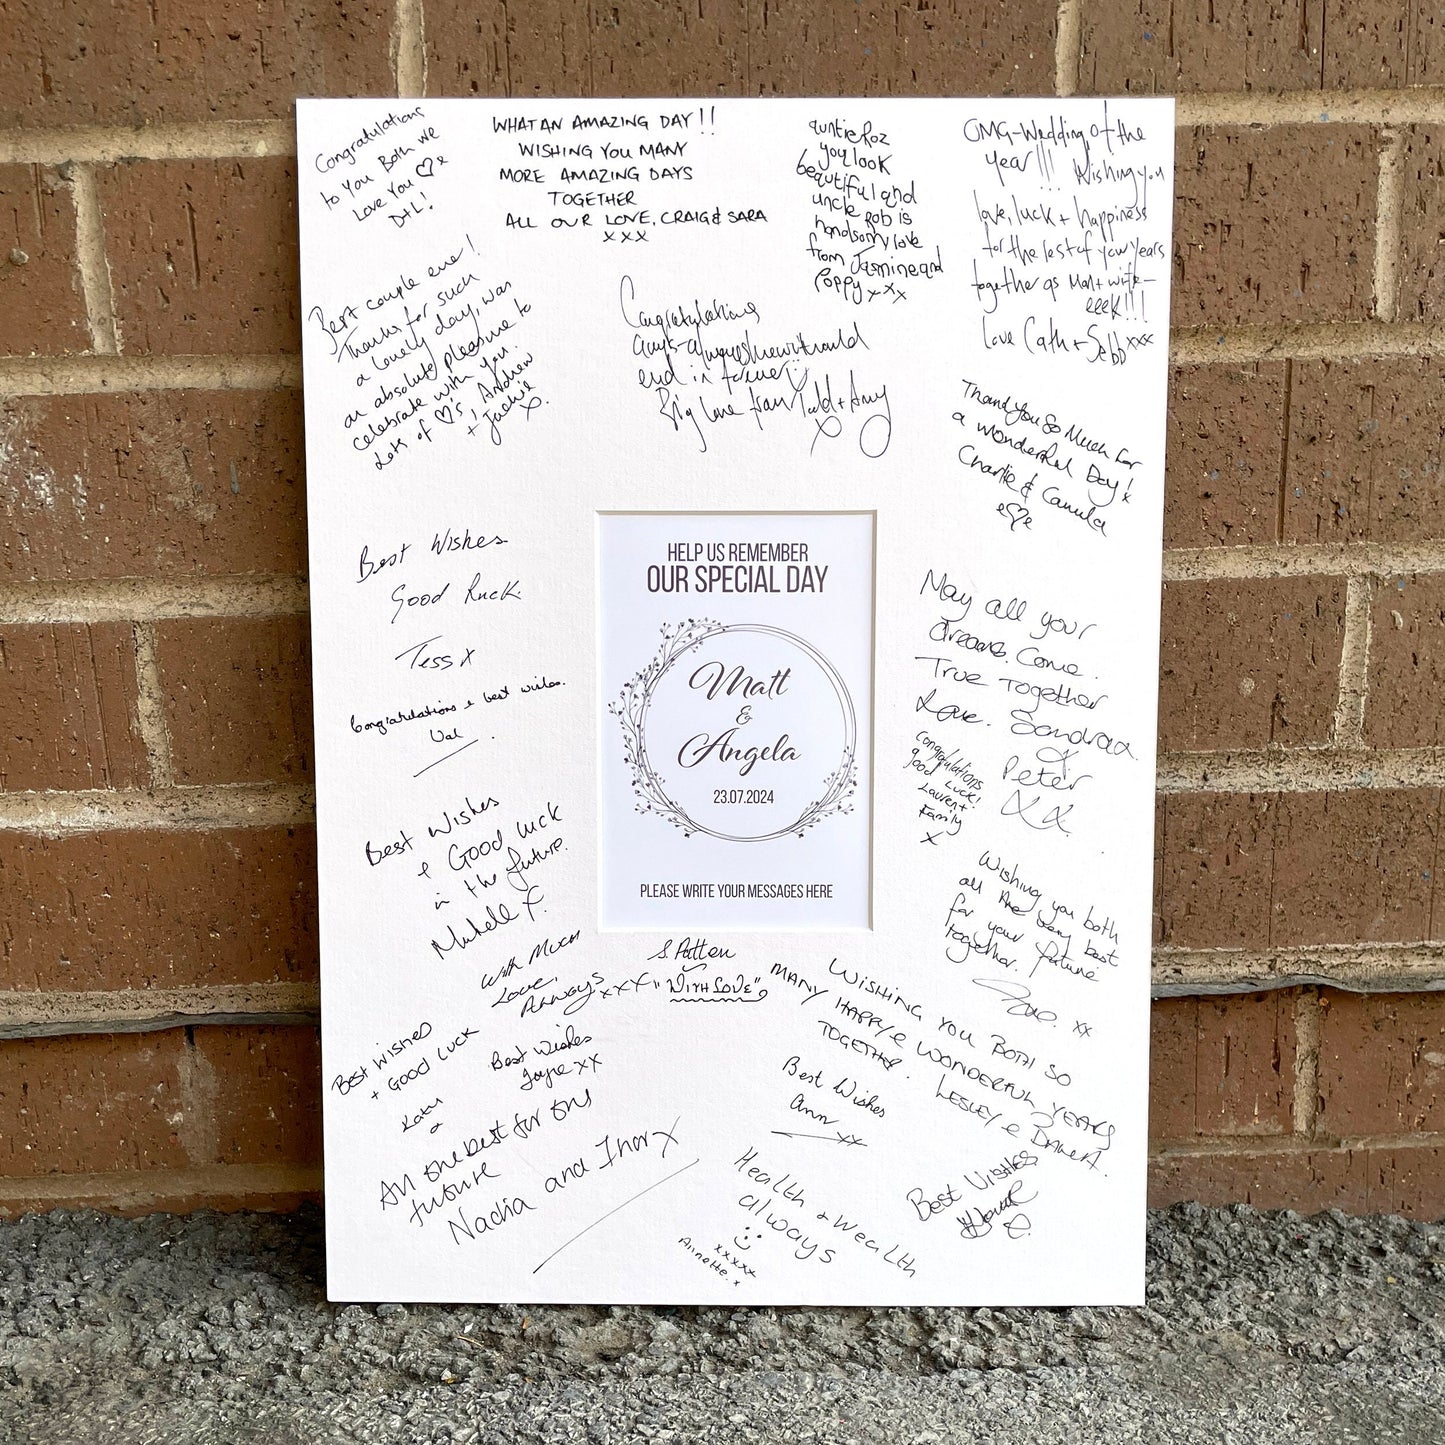 Congratulations
to You Both we
Love You
D+L!
WHAT AN AMAZING DAY!!
WISHING YOU MANY
MORE AMAZING DAYS
TOGETHER
ALL OUR LOVE, CRAIG & SARA
xxx
auntie Roz
you look
beautiful and
uncle Rob is
handsom love
from Jasmine and
Poppy xxx
OMG-Wedding of the
year!!! Wishing you
love, luck + happiness
for the rest of your years
together as Man + wife-
eeek!!!
Love Cath + Sebb xxx
Best couple ever!
Thanks for such
a lovely day, was
an absolute pleasure to
celebrate with you.
Lots of ♡'s, Andrew
+ Jackie x.
Congratulations
guys-always knew it would
end in
Big love from Todd + Amy
x
Thank you So Much for
a wonderful Day! x
Charlie & Camula
Best Wishes
Good Luck.
Tess x
Congratulations & best wishes.
Val
Best Wishes
& Good luck
in the future.
Michelle x.
HELP US REMEMBER
OUR SPECIAL DAY
Matt
&
Angela
23.07.2024
PLEASE WRITE YOUR MESSAGES HERE
May all your
dreams. Come.
True Together
Love. Sandraa
&
Peter
xx.
Congratulations
good Luck!
Lauren +
Family
x
Wishing you both
all the very best
for your future
together.
xx
With Much
Love,
xxx
S. Patten
"WITH LOVE"
WISHING YOU BOTH SO
MANY HAPPY & WONDERFUL YEARS
TOGETHER.
LESLEY &
Best Wishes
+ Good Luck
Katy
Best Wishes
Jayne xx
All the best for the
future
Nadia and Thor x
Best Wishes
Ann
xx
Health + Wealth
always
xxxxx
Annette. x
Best Wishes